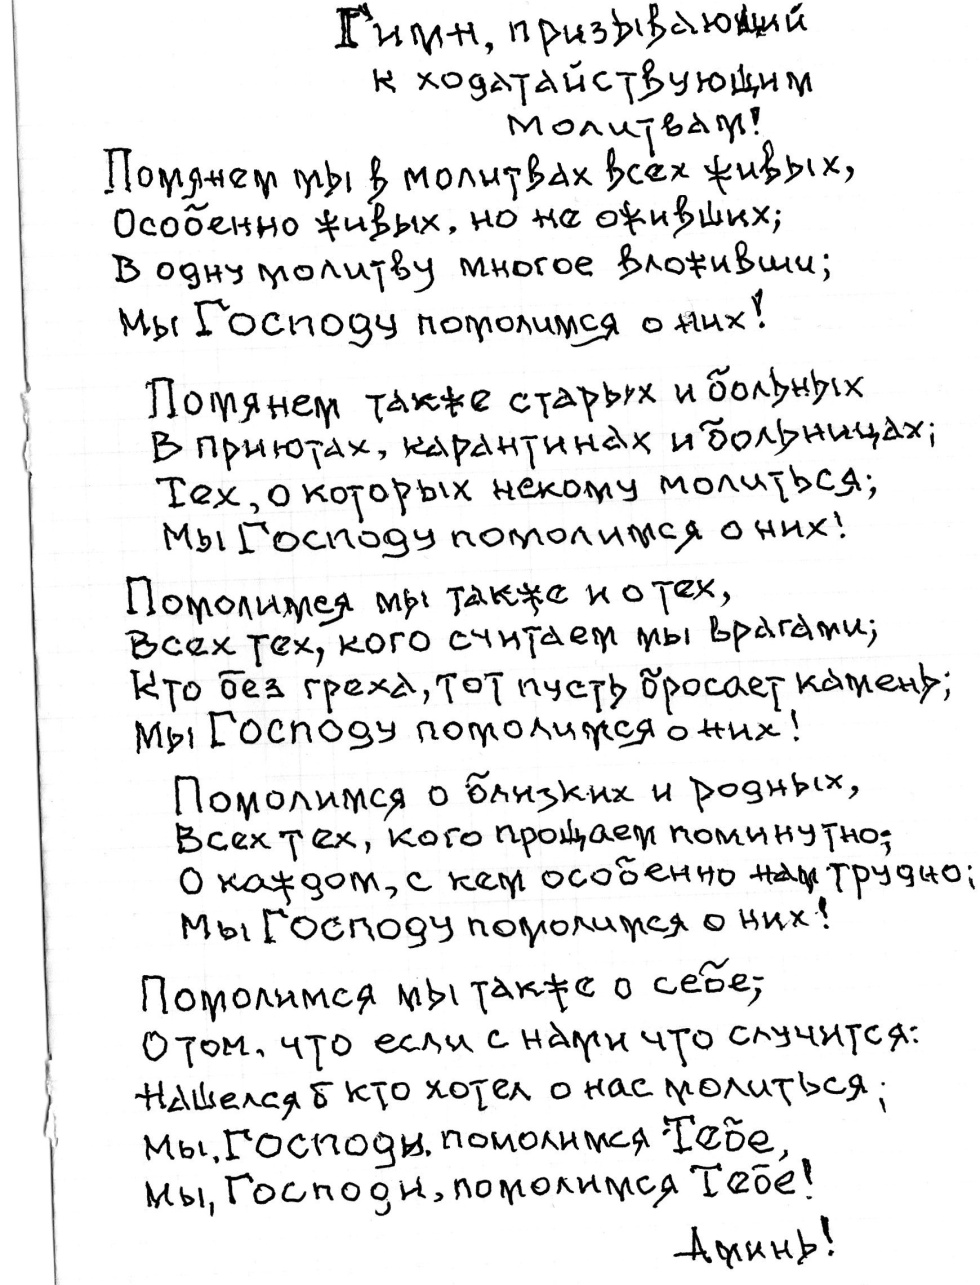 Гимн, призывающий
к ходатайствующим
молитвам!
Помянем мы в молитвах всех живых,
Особенно живых, но не оживших;
В одну молитву многое вложивши;
Мы Господу помолимся о них!
Помянем также старых и больных
В приютах, карантинах и больницах;
Тех, о которых некому молиться;
Мы Господу помолимся о них!
Помолимся мы также и о тех,
Всех тех, кого считаем мы врагами;
Кто без греха, тот пусть бросает камень;
Мы Господу помолимся о них!
Помолимся о близких и родных,
Всех тех, кого прощаем поминутно;
О каждом, с кем особенно нам трудно;
Мы Господу помолимся о них!
Помолимся мы также о себе;
О том, что если с нами что случится:
Нашелся б кто хотел о нас молиться;
Мы, Господи, помолимся Тебе,
Мы, Господи, помолимся Тебе!
Аминь!